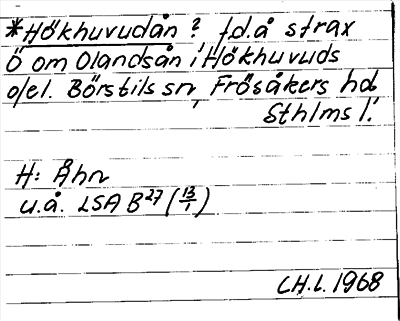 *Hökhuvudån? f.d. å strax
Ö om Olandsån i Hökhuvuds
o/el. Börstils sn, Frösåkers hd,
Sthlms l.
H: Åhn
u.å. LSA B27 (13/1)
CH.L. 1968